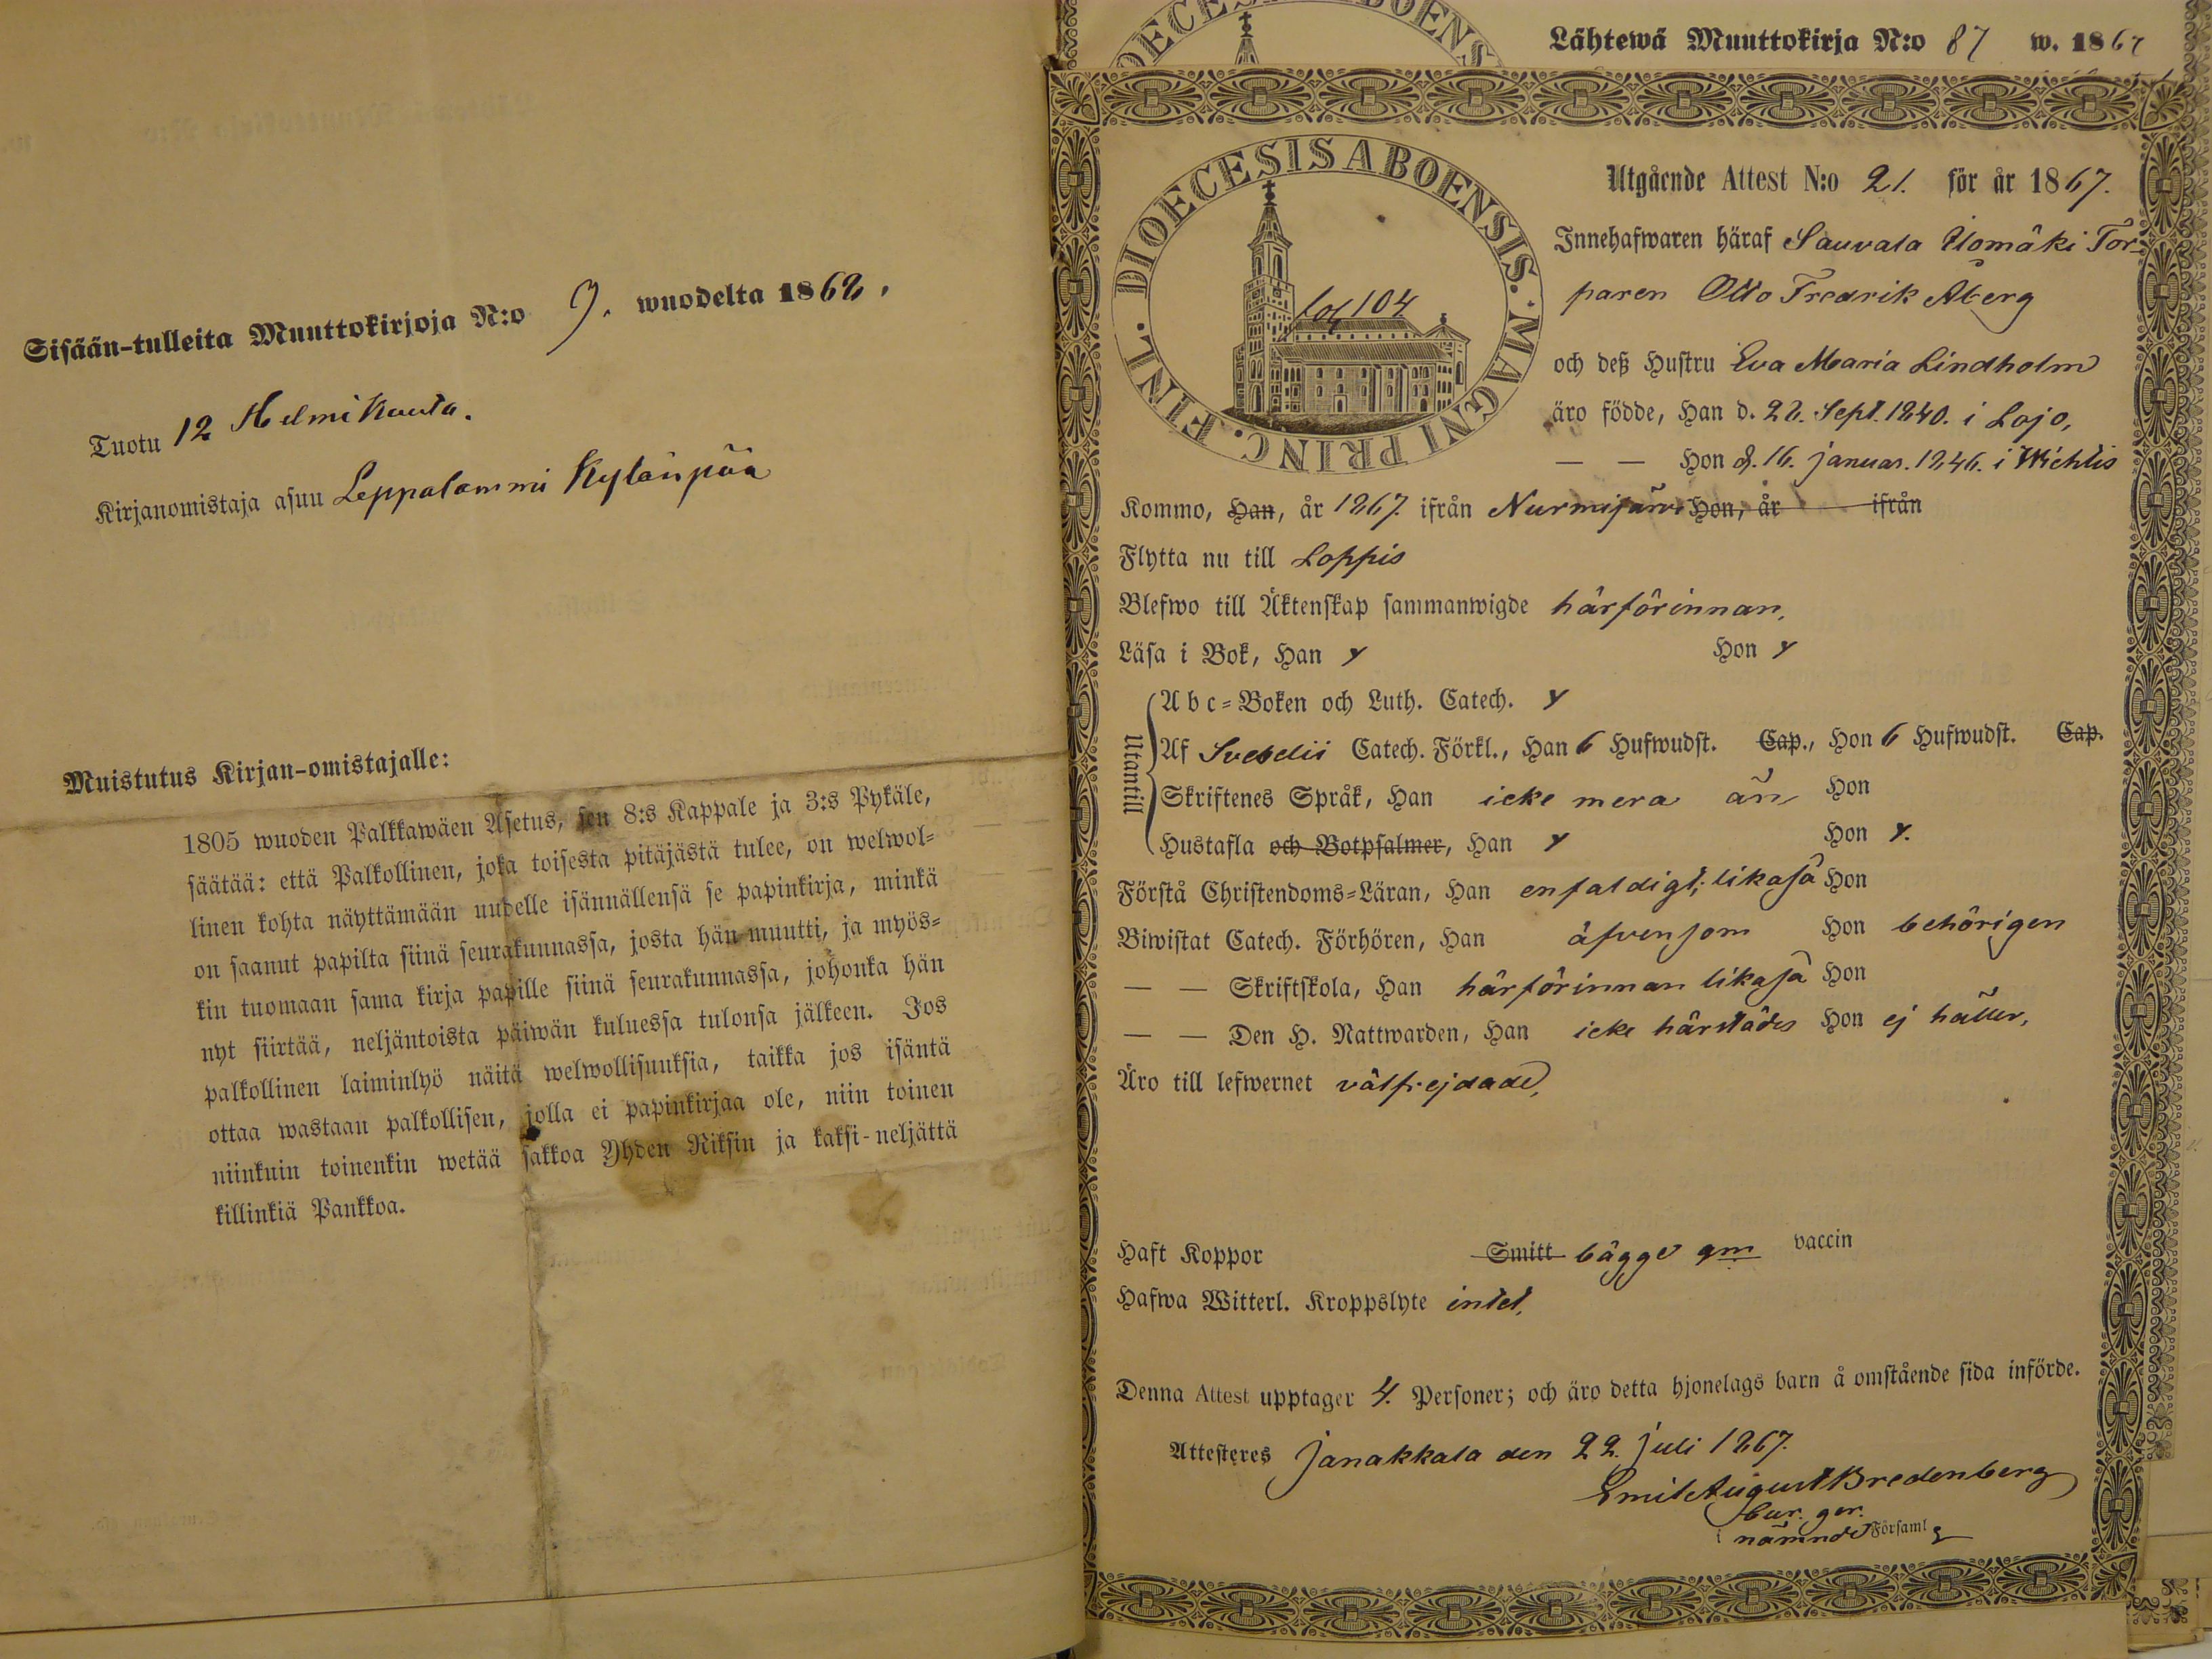 Sisään-tulleita Muuttokirjoja N:o 9. wuodelta 1868.
Tuotu 12 Helmikuuta.
Kirjanomistaja asuu Leppalammi Kylänpää
Muistutus Kirjan-omistajalle:
1805 wuoden Palkkawäen Asetus, sen 8:s Kappale ja 3:s Pykäle,
säätää: että Palkollinen, joka toisesta pitäjästä tulee, on welwol=
linen kohta näyttämään uudelle isännällensä se papinkirja, minkä
on saanut papilta siinä seurakunnassa, josta hän muutti, ja myös=
kin tuomaan sama kirja papille siinä seurakunnassa, johonka hän
nyt siirtää, neljäntoista päiwän kuluessa tulonsa jälkeen. Jos
palkollinen laiminlyö näitä welwollisuuksia, taikka jos isäntä
ottaa wastaan palkollisen, jolla ei papinkirjaa ole, niin toinen
niinkuin toinenkin wetää sakkoa Yhden Riksin ja kaksi-neljättä
killinkiä Pankkoa.
Lähtewä Muuttokirja N:o 87 w. 1867
DIOECESIS ABOENSIS. MAGNI PRINC. FINL.
104
Utgående Attest N:o 21. för år 1867.
Innehafwaren häraf Sauvala Ilomäki Tor=
paren Otto Fredrik Åberg
och deß Hustru Eva Maria Lindholm
äro födde, Han d. 28. Sept. 1840. i Lojo,
— — Hon d. 16. januar. 1846. i Wichtis
Kommo, Han, år 1867 ifrån Nurmijärvi Hon, år ifrån
Flytta nu till Loppis
Blefwo till Äktenskap sammanwigde härförinnan,
Läsa i Bok, Han y Hon y
Utantill
A b c=Boken och Luth. Catech. y
Af Svebelii Catech. Förkl., Han 6 Hufwudst. Cap., Hon 6 Hufwudst. Cap.
Skriftenes Språk, Han icke mera än Hon
Hustafla och Botpsalmer, Han y Hon y.
Förstå Christendoms=Läran, Han enfaldigt; likaså Hon
Biwistat Catech. Förhören, Han äfvensom Hon behörigen
— — Skriftskola, Han härförinnan likaså Hon
— — Den H. Nattwarden, Han icke härstädes Hon ej häller,
Äro till lefwernet välfrejdade,
Haft Koppor Smitt bägge gm vaccin
Hafwa Witterl. Kroppslyte intet,
Denna Attest upptager 4. Personer; och äro detta hjonelags barn å omstående sida införde.
Attesteres Janakkala den 22. juli 1867.
Emil August Bredenberg
i nämnde Församl